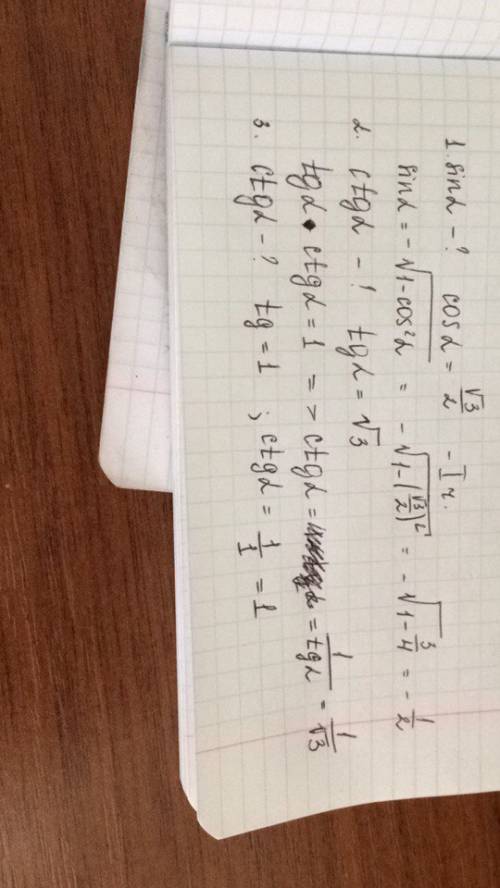 1. sinα - ? cosα = √3/2 - I ч.
sinα = -√(1-cos²α) = -√(1-(√3/2)²) = -√(1-3/4) = -1/2
2. ctgα - ? tgα = √3
tgα • ctgα = 1 => ctgα = = 1/tgα = 1/√3
3. ctgα - ? tg = 1 ; ctgα = 1/1 = 1